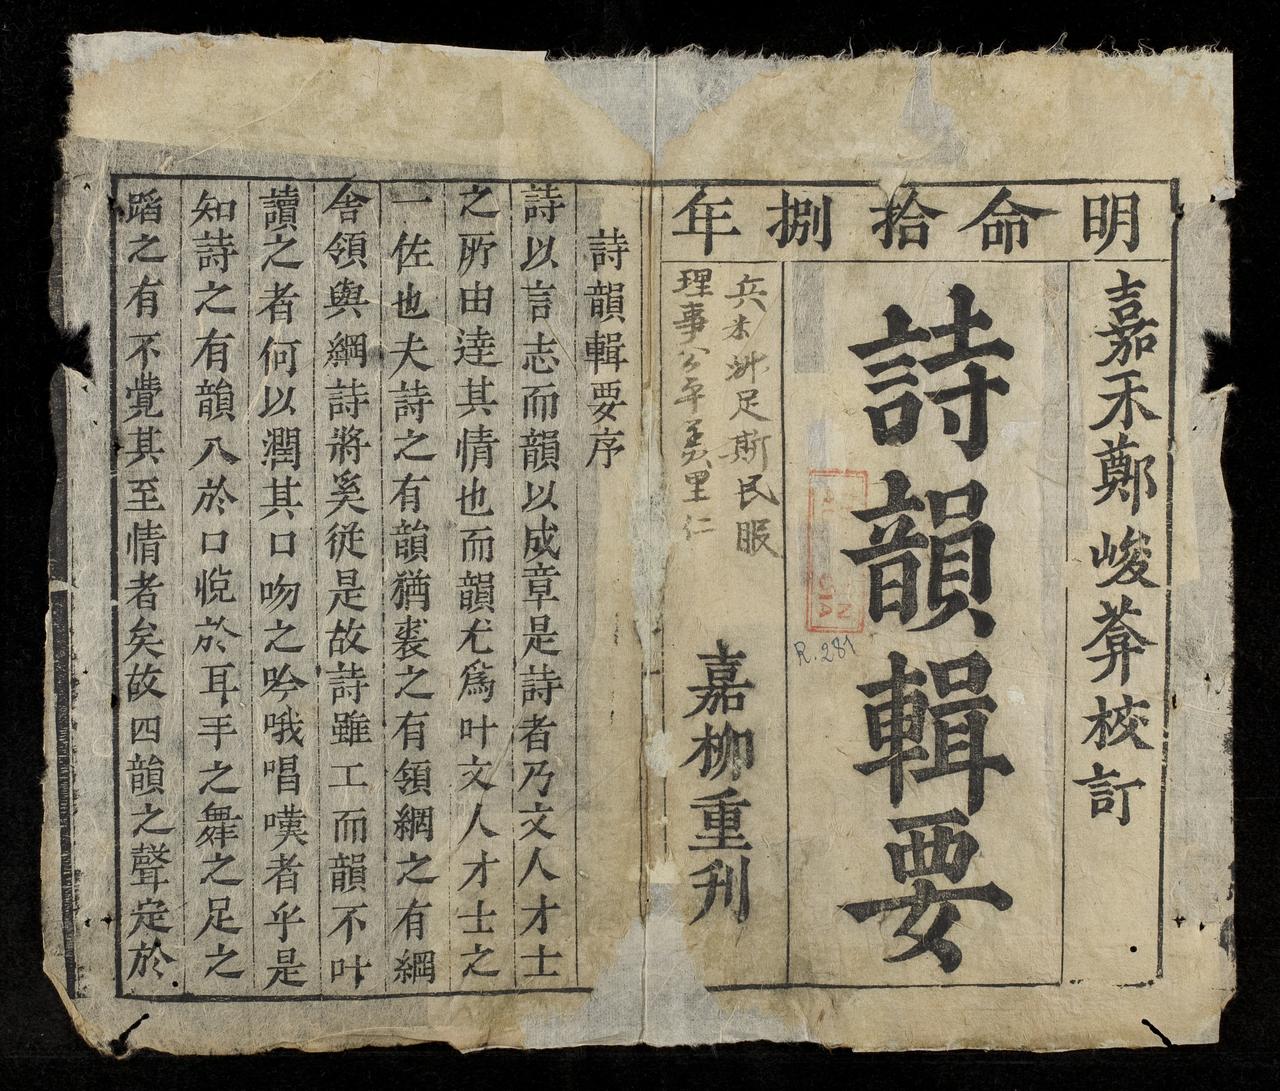 明命拾捌年
嘉禾鄭峻葊校訂
詩韻輯要
嘉柳重刊
足斯民
理事公平美里仁
R.281
詩韻輯要序
詩以言志而韻以成章是詩者乃文人才士
之所由達其情也而韻尤爲叶文人才士之
一佐也夫詩之有韻猶裘之有領網之有綱
舍領與綱詩將奚從是故詩雖工而韻不叶
讀之者何以潤其口吻之吟哦唱嘆者乎是
知詩之有韻入於口悅於耳手之舞之足之
蹈之有不覺其至情者矣故四韻之聲定於